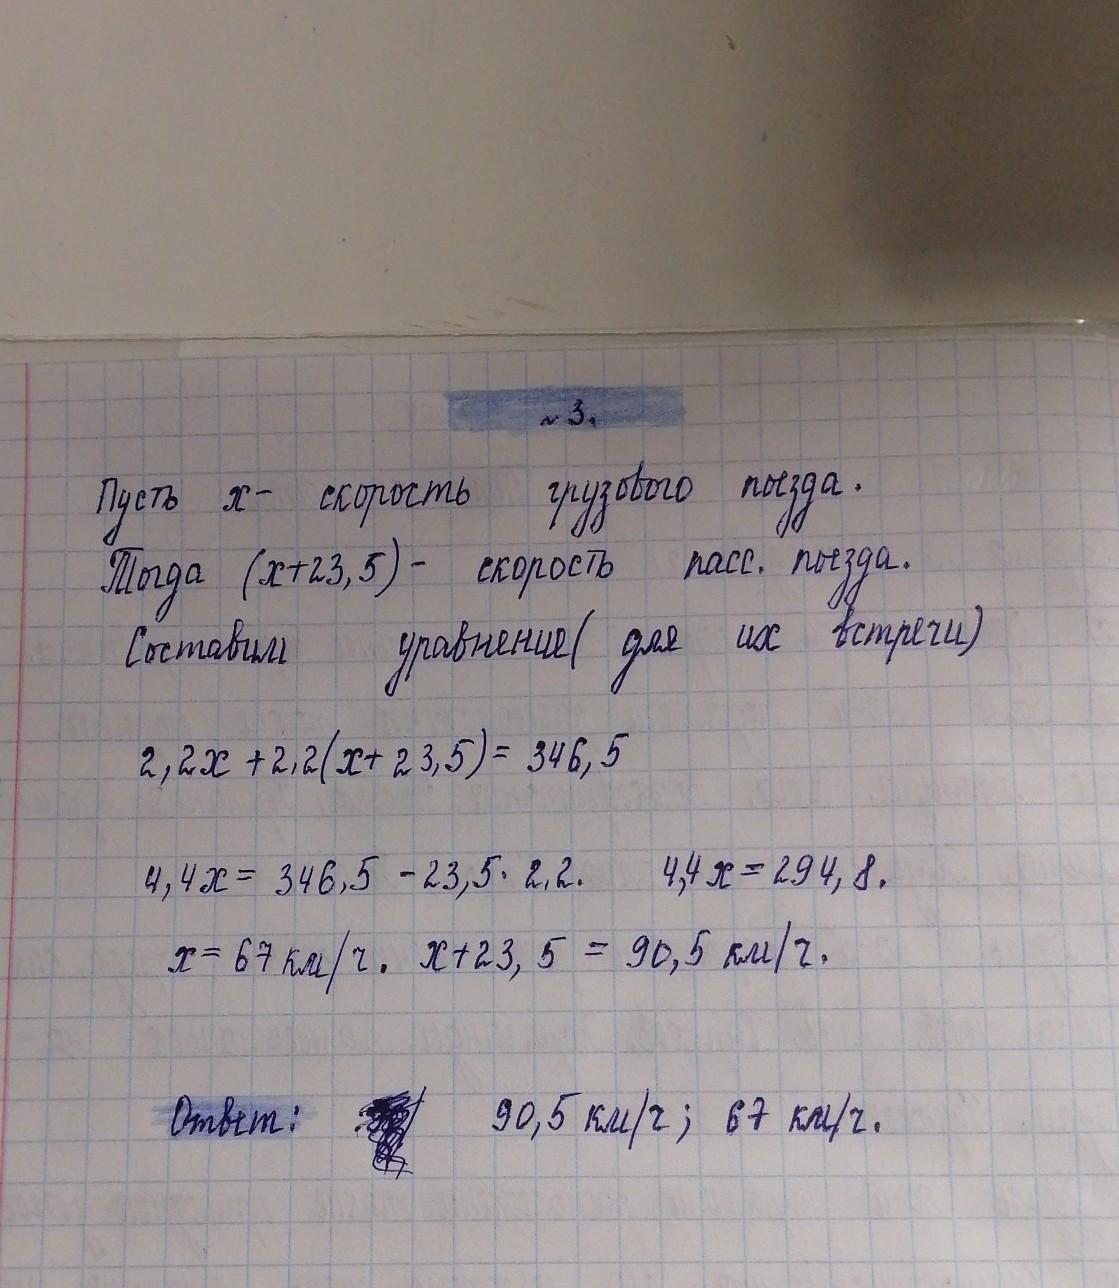 ~ 3.
Пусть х- скорость грузового поезда.
Тогда (х+23,5)- скорость пасс. поезда.
Составим уравнение( для их встречи)
2,2х +2,2(х+ 23,5)= 346,5
4,4х= 346,5 -23,5· 2,2. 4,4х=294,8.
х= 67 км/ч. х+23, 5 = 90,5 км/ч.
Ответ: 90,5 км/ч; 67 км/ч.